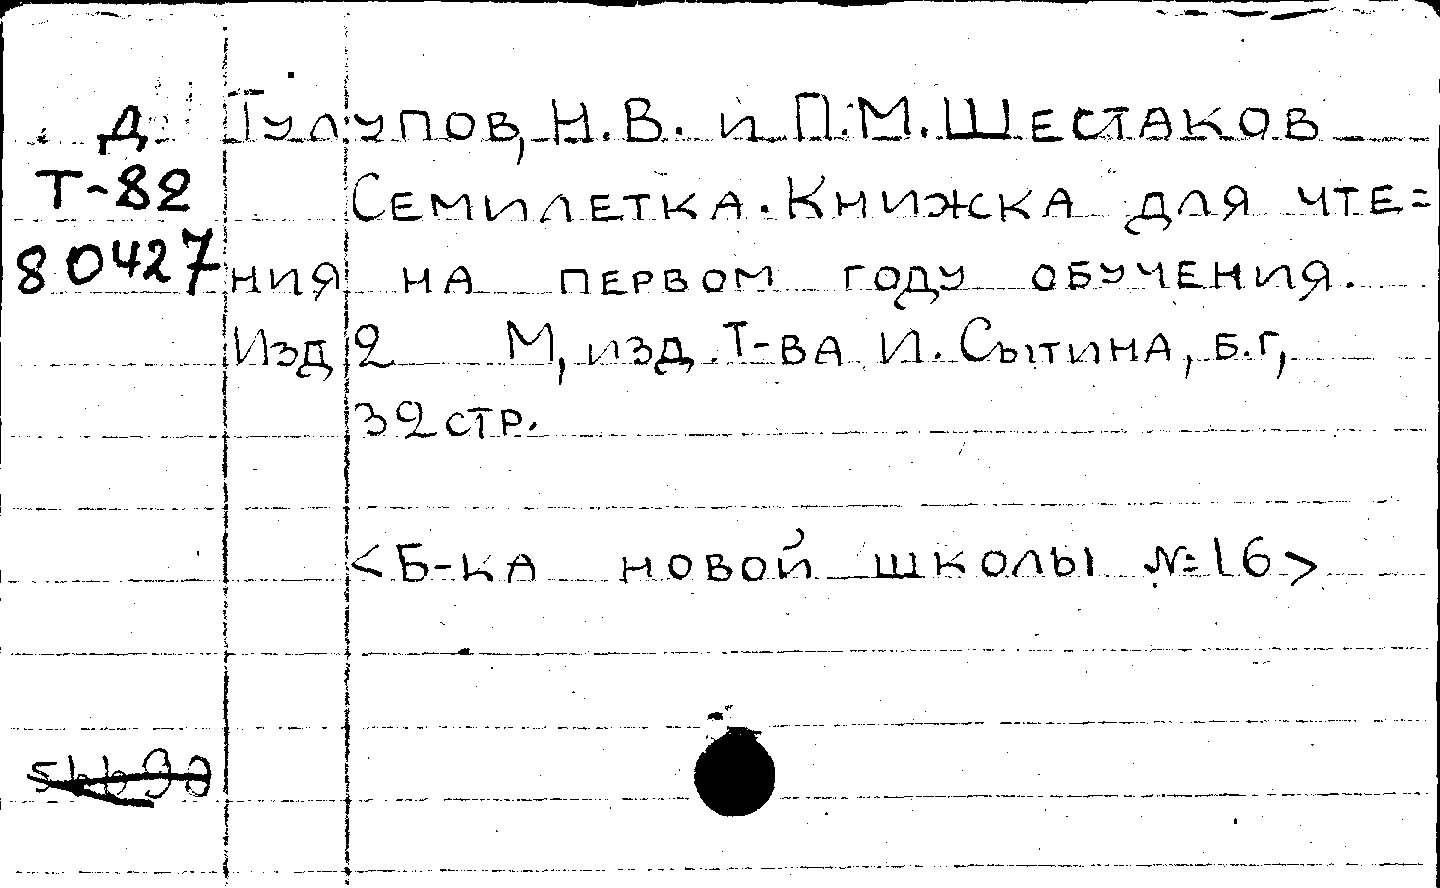 Д Тулупов, Н.В. и П.М. Шестаков
Т-82 Семилетка. Книжка для чте=
80427 ния на первом году обучения.
Изд 2 М, изд. Т-ва И. Сытина, б.г,
32 стр.
<Б-ка новой школы №16>